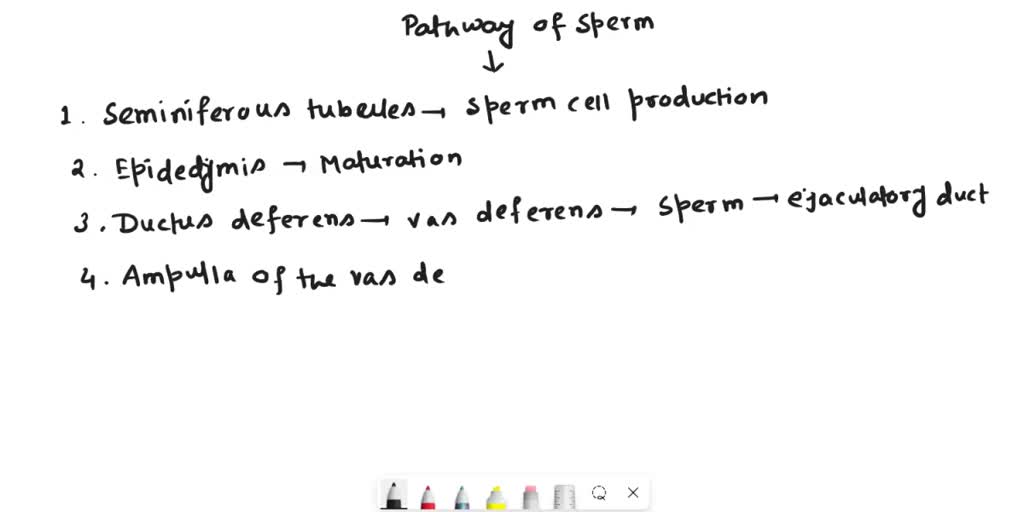 Pathway of sperm
↓
1. Seminiferous tubules → sperm cell production
2. Epidedymis → Maturation
3. Ductus deferens → vas deferens → sperm → ejaculatory duct
4. Ampulla of the vas de